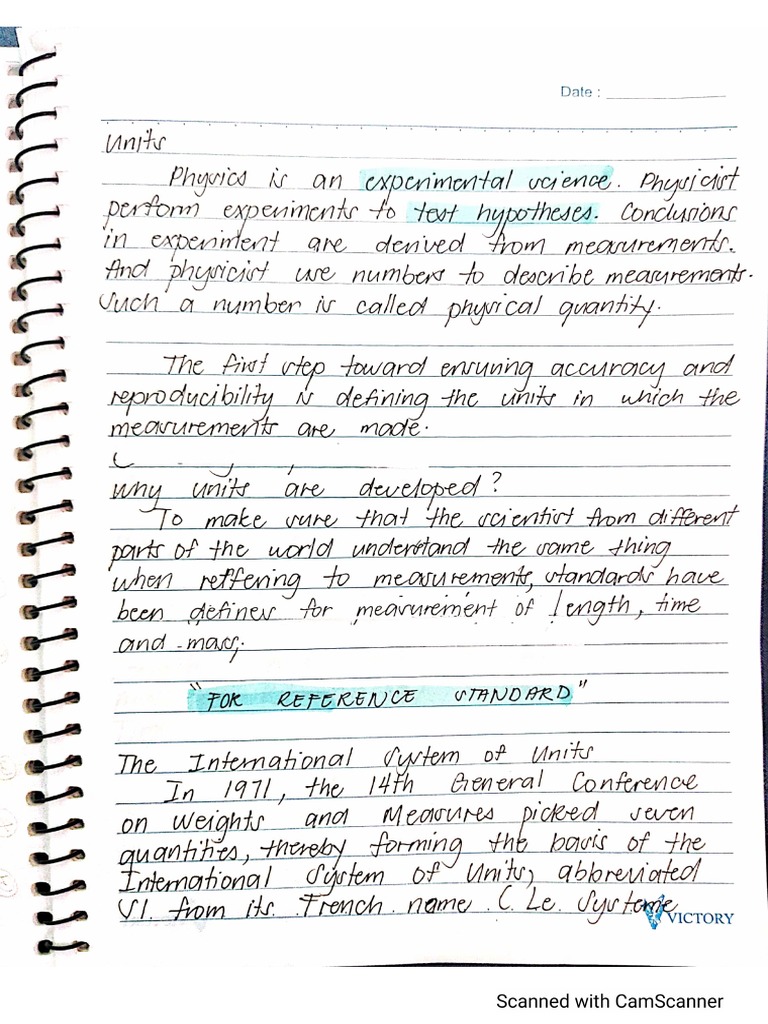 Date :
Units
Physics is an experimental science. Physicist
perform experiments to test hypotheses. Conclusions
in experiment are derived from measurements.
And physicist use numbers to describe measurements.
Such a number is called physical quantity.
The first step toward ensuring accuracy and
reproducibility is defining the units in which the
measurements are made.
why units are developed?
To make sure that the scientist from different
parts of the world understand the same thing
when reffering to measurements, standards have
been defines for measurement of length, time
and mass;
"FOR REFERENCE STANDARD"
The International System of Units
In 1971, the 14th General Conference
on Weights and Measures picked seven
quantities, thereby forming the basis of the
International System of Units, abbreviated
SI. from its French name C. Le Systeme
VICTORY
Scanned with CamScanner